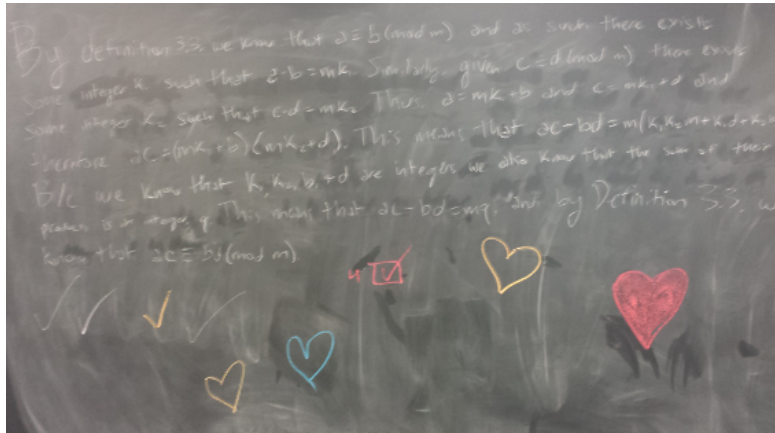 By definition 3.3, we know that a≡b(mod m) and as such there exists
some integer k, such that a-b=mk. Similarly, given c≡d(mod m) there exists
some integer k₂ such that c-d=mk₂. Thus a=mk+b and c=mk₂+d and
therefore ac=(mk₁+b)(mk₂+d). This means that ac-bd=m(k₁k₂m+k₁d+k₂
B/c we know that k₁,k₂,b,+d are integers we also know that the sum of their
products is an integer q. This means that ac-bd=mq, and by Definition 3.3, w
know that ac≡bd(mod m)